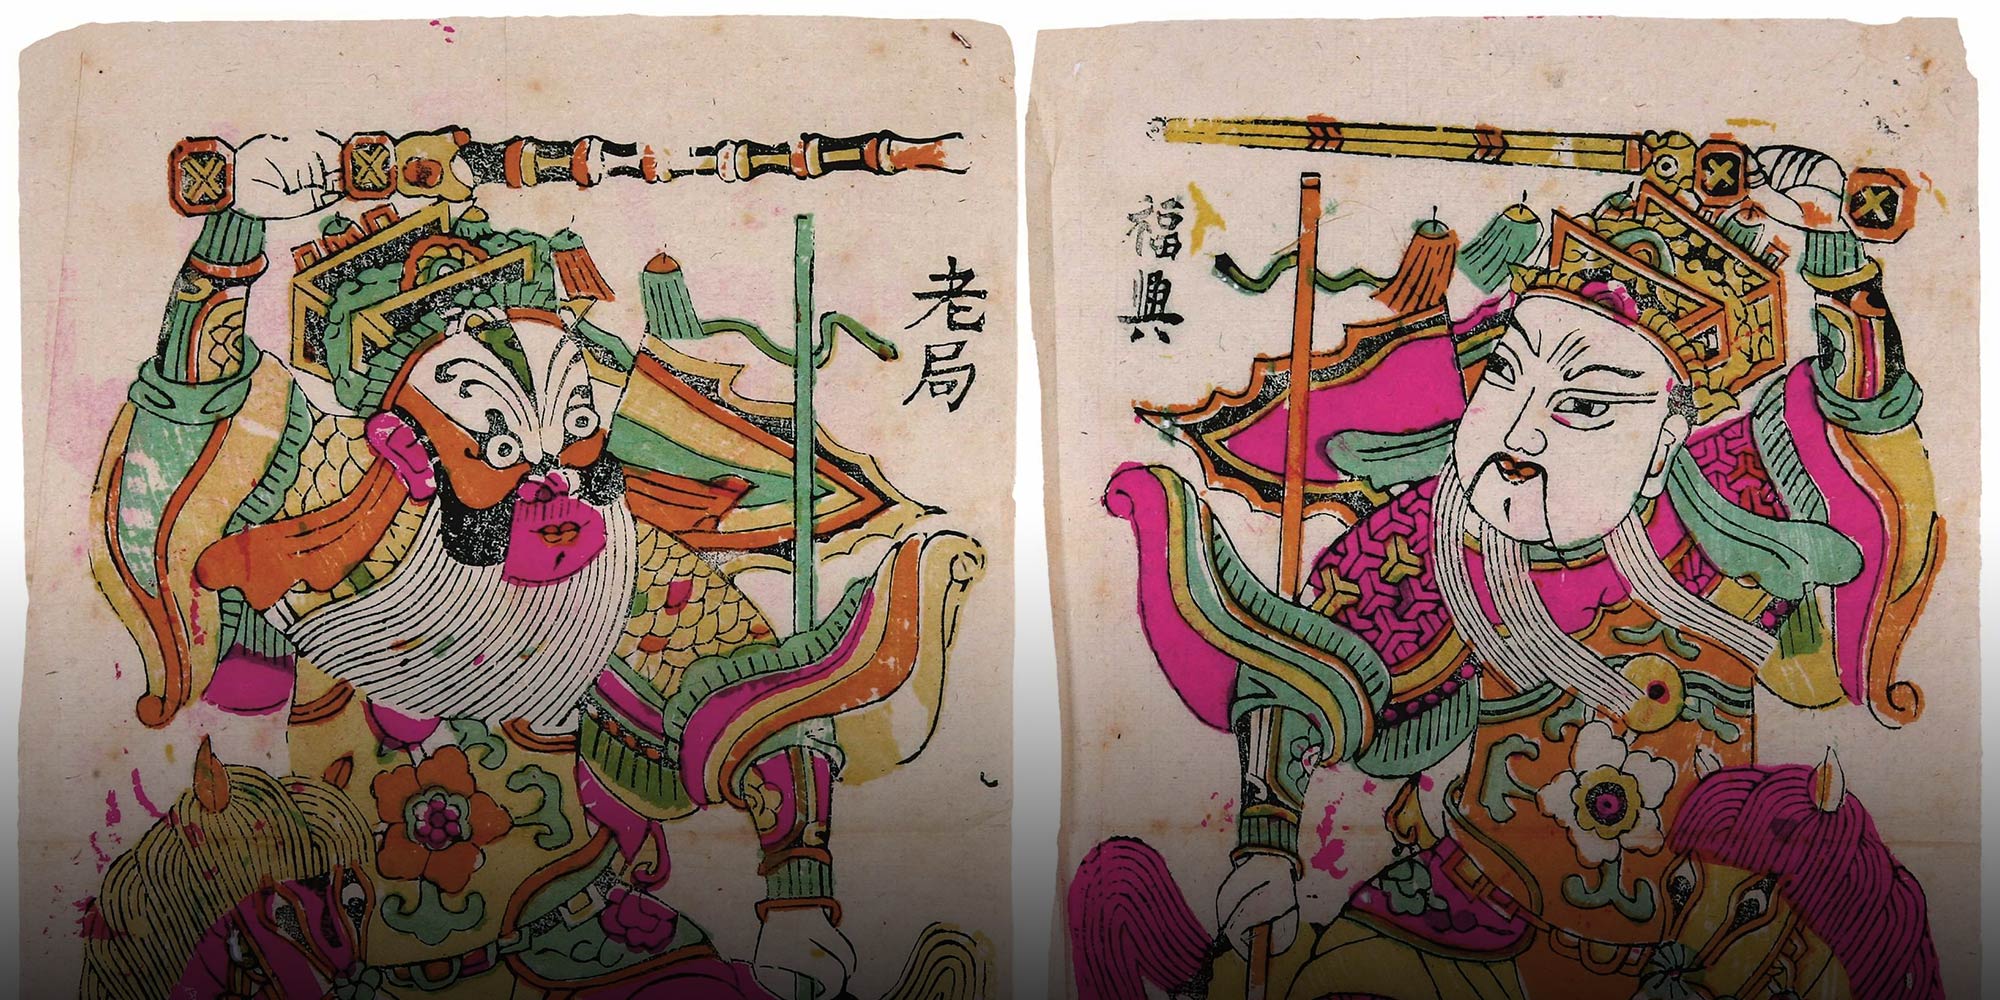 老局
福興